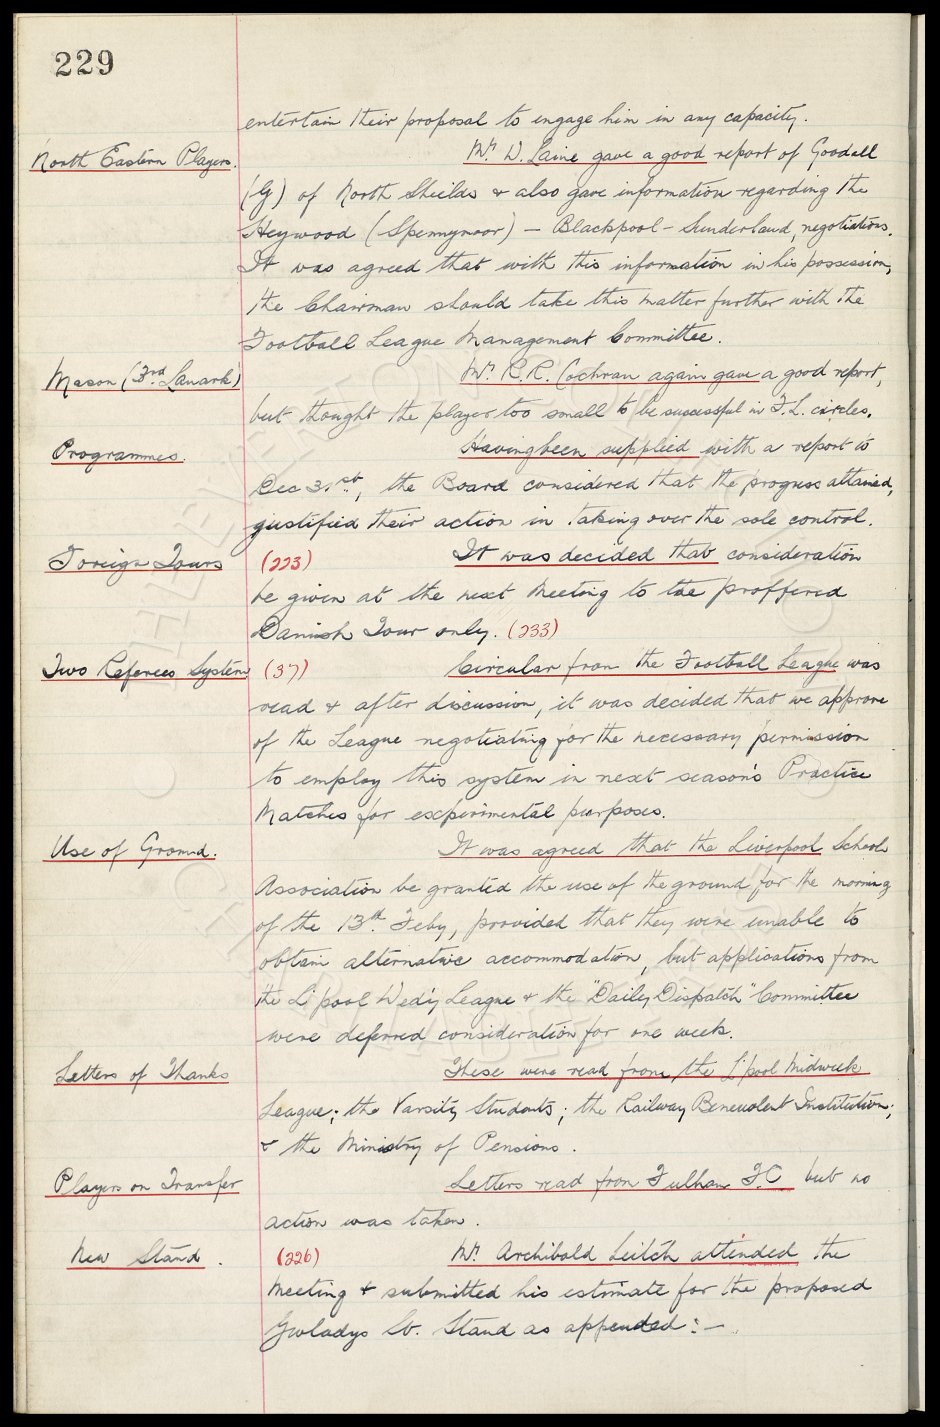 229
entertain their proposal to engage him in any capacity.
North Eastern Players. Mr. D. Laine gave a good report of Goodall
(G) of North Shields & also gave information regarding the
Heywood (Spennymoor) – Blackpool – Sunderland, negotiations.
It was agreed that with this information in his possession,
the Chairman should take this matter further with the
Football League Management Committee.
Mason (3rd Lanark) Mr. R.R. Cochran again gave a good report,
but thought the player too small to be successful in F.L. circles.
Programmes. Having been supplied with a report to
Dec 31st, the Board considered that the progress attained,
justified their action in taking over the sole control.
Foreign Tours (223) It was decided that consideration
be given at the next Meeting to the proffered
Danish Tour only. (233)
Two Referees System (37) Circular from the Football League was
read & after discussion, it was decided that we approve
of the League negotiating for the necessary permission
to employ this system in next season's Practice
Matches for experimental purposes.
Use of Ground. It was agreed that the Liverpool Schools
Association be granted the use of the ground for the morning
of the 13th Feby, provided that they were unable to
obtain alternative accommodation, but applications from
the L'pool Wed'y League & the "Daily Dispatch" Committee
were deferred consideration for one week.
Letters of Thanks These were read from the L'pool Midweek
League; the Varsity Students; the Railway Benevolent Institution;
& the Ministry of Pensions.
Players on Transfer Letters read from Fulham F.C but no
action was taken.
New Stand. (226) Mr. Archibald Leitch attended the
Meeting & submitted his estimate for the proposed
Gwladys St. Stand as appended:–